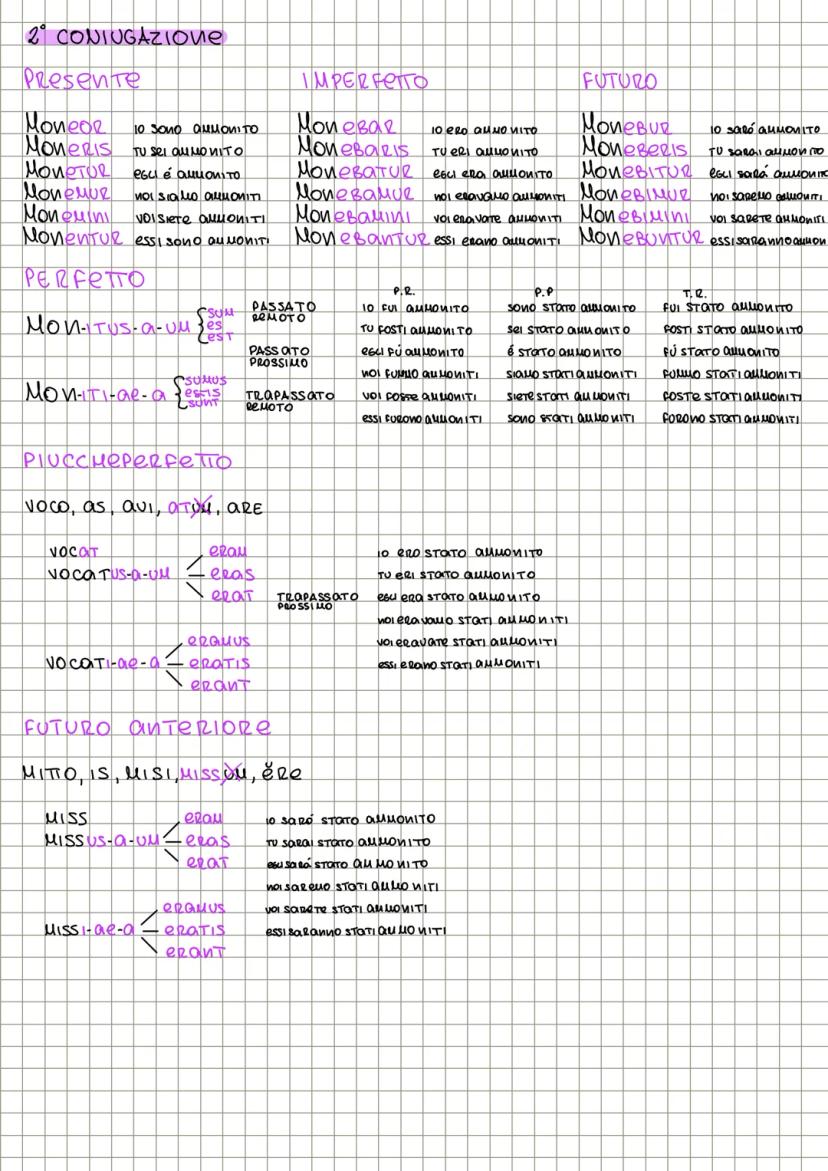 2° CONIUGAZIONE
PRESENTE IMPERFETTO FUTURO
MONEOR IO SONO AMMONITO MONEBAR IO ERO AMMONITO MONEBUR IO SARÓ AMMONITO
MONERIS TU SEI AMMONITO MONEBARIS TU ERI AMMONITO MONEBERIS TU SARAI AMMONITO
MONETUR EGLI É AMMONITO MONEBATUR EGLI ERA AMMONITO MONEBITUR EGLI SARÁ AMMONITO
MONEMUR NOI SIAMO AMMONITI MONEBAMUR NOI ERAVAMO AMMONITI MONEBIMUR NOI SAREMO AMMONITI
MONEMINI VOI SIETE AMMONITI MONEBAMINI VOI ERAVATE AMMONITI MONEBIMINI VOI SARETE AMMONITI
MONENTUR ESSI SONO AMMONITI MONEBANTUR ESSI ERANO AMMONITI MONEBUNTUR ESSI SARANNO AMMON
PERFETTO
P.R. P.P T.R.
MON-ITUS-A-UM { SUM ES EST
MON-ITI-AE-A { SUMUS ESTIS SUNT
PASSATO REMOTO
PASSATO PROSSIMO
TRAPASSATO REMOTO
IO FUI AMMONITO SONO STATO AMMONITO FUI STATO AMMONITO
TU FOSTI AMMONITO SEI STATO AMMONITO FOSTI STATO AMMONITO
EGLI FÚ AMMONITO É STATO AMMONITO FÚ STATO AMMONITO
NOI FUMMO AMMONITI SIAMO STATI AMMONITI FUMMO STATI AMMONITI
VOI FOSTE AMMONITI SIETE STATI AMMONITI FOSTE STATI AMMONITI
ESSI FURONO AMMONITI SONO STATI AMMONITI FORONO STATI AMMONITI
PIUCCHEPERFETTO
VOCO, AS, AVI, ATUM, ARE
VOCAT ERAM IO ERO STATO AMMONITO
VOCATUS-A-UM ERAS TU ERI STATO AMMONITO
ERAT TRAPASSATO PROSSIMO EGLI ERA STATO AMMONITO
NOI ERAVAMO STATI AMMONITI
ERAMUS VOI ERAVATE STATI AMMONITI
VOCATI-AE-A ERATIS ESSI ERANO STATI AMMONITI
ERANT
FUTURO ANTERIORE
MITTO, IS, MISI, MISSUM, ĔRE
MISS ERAM IO SARÓ STATO AMMONITO
MISSUS-A-UM ERAS TU SARAI STATO AMMONITO
ERAT EGLI SARÁ STATO AMMONITO
NOI SAREMO STATI AMMONITI
ERAMUS VOI SARETE STATI AMMONITI
MISSI-AE-A ERATIS ESSI SARANNO STATI AMMONITI
ERANT